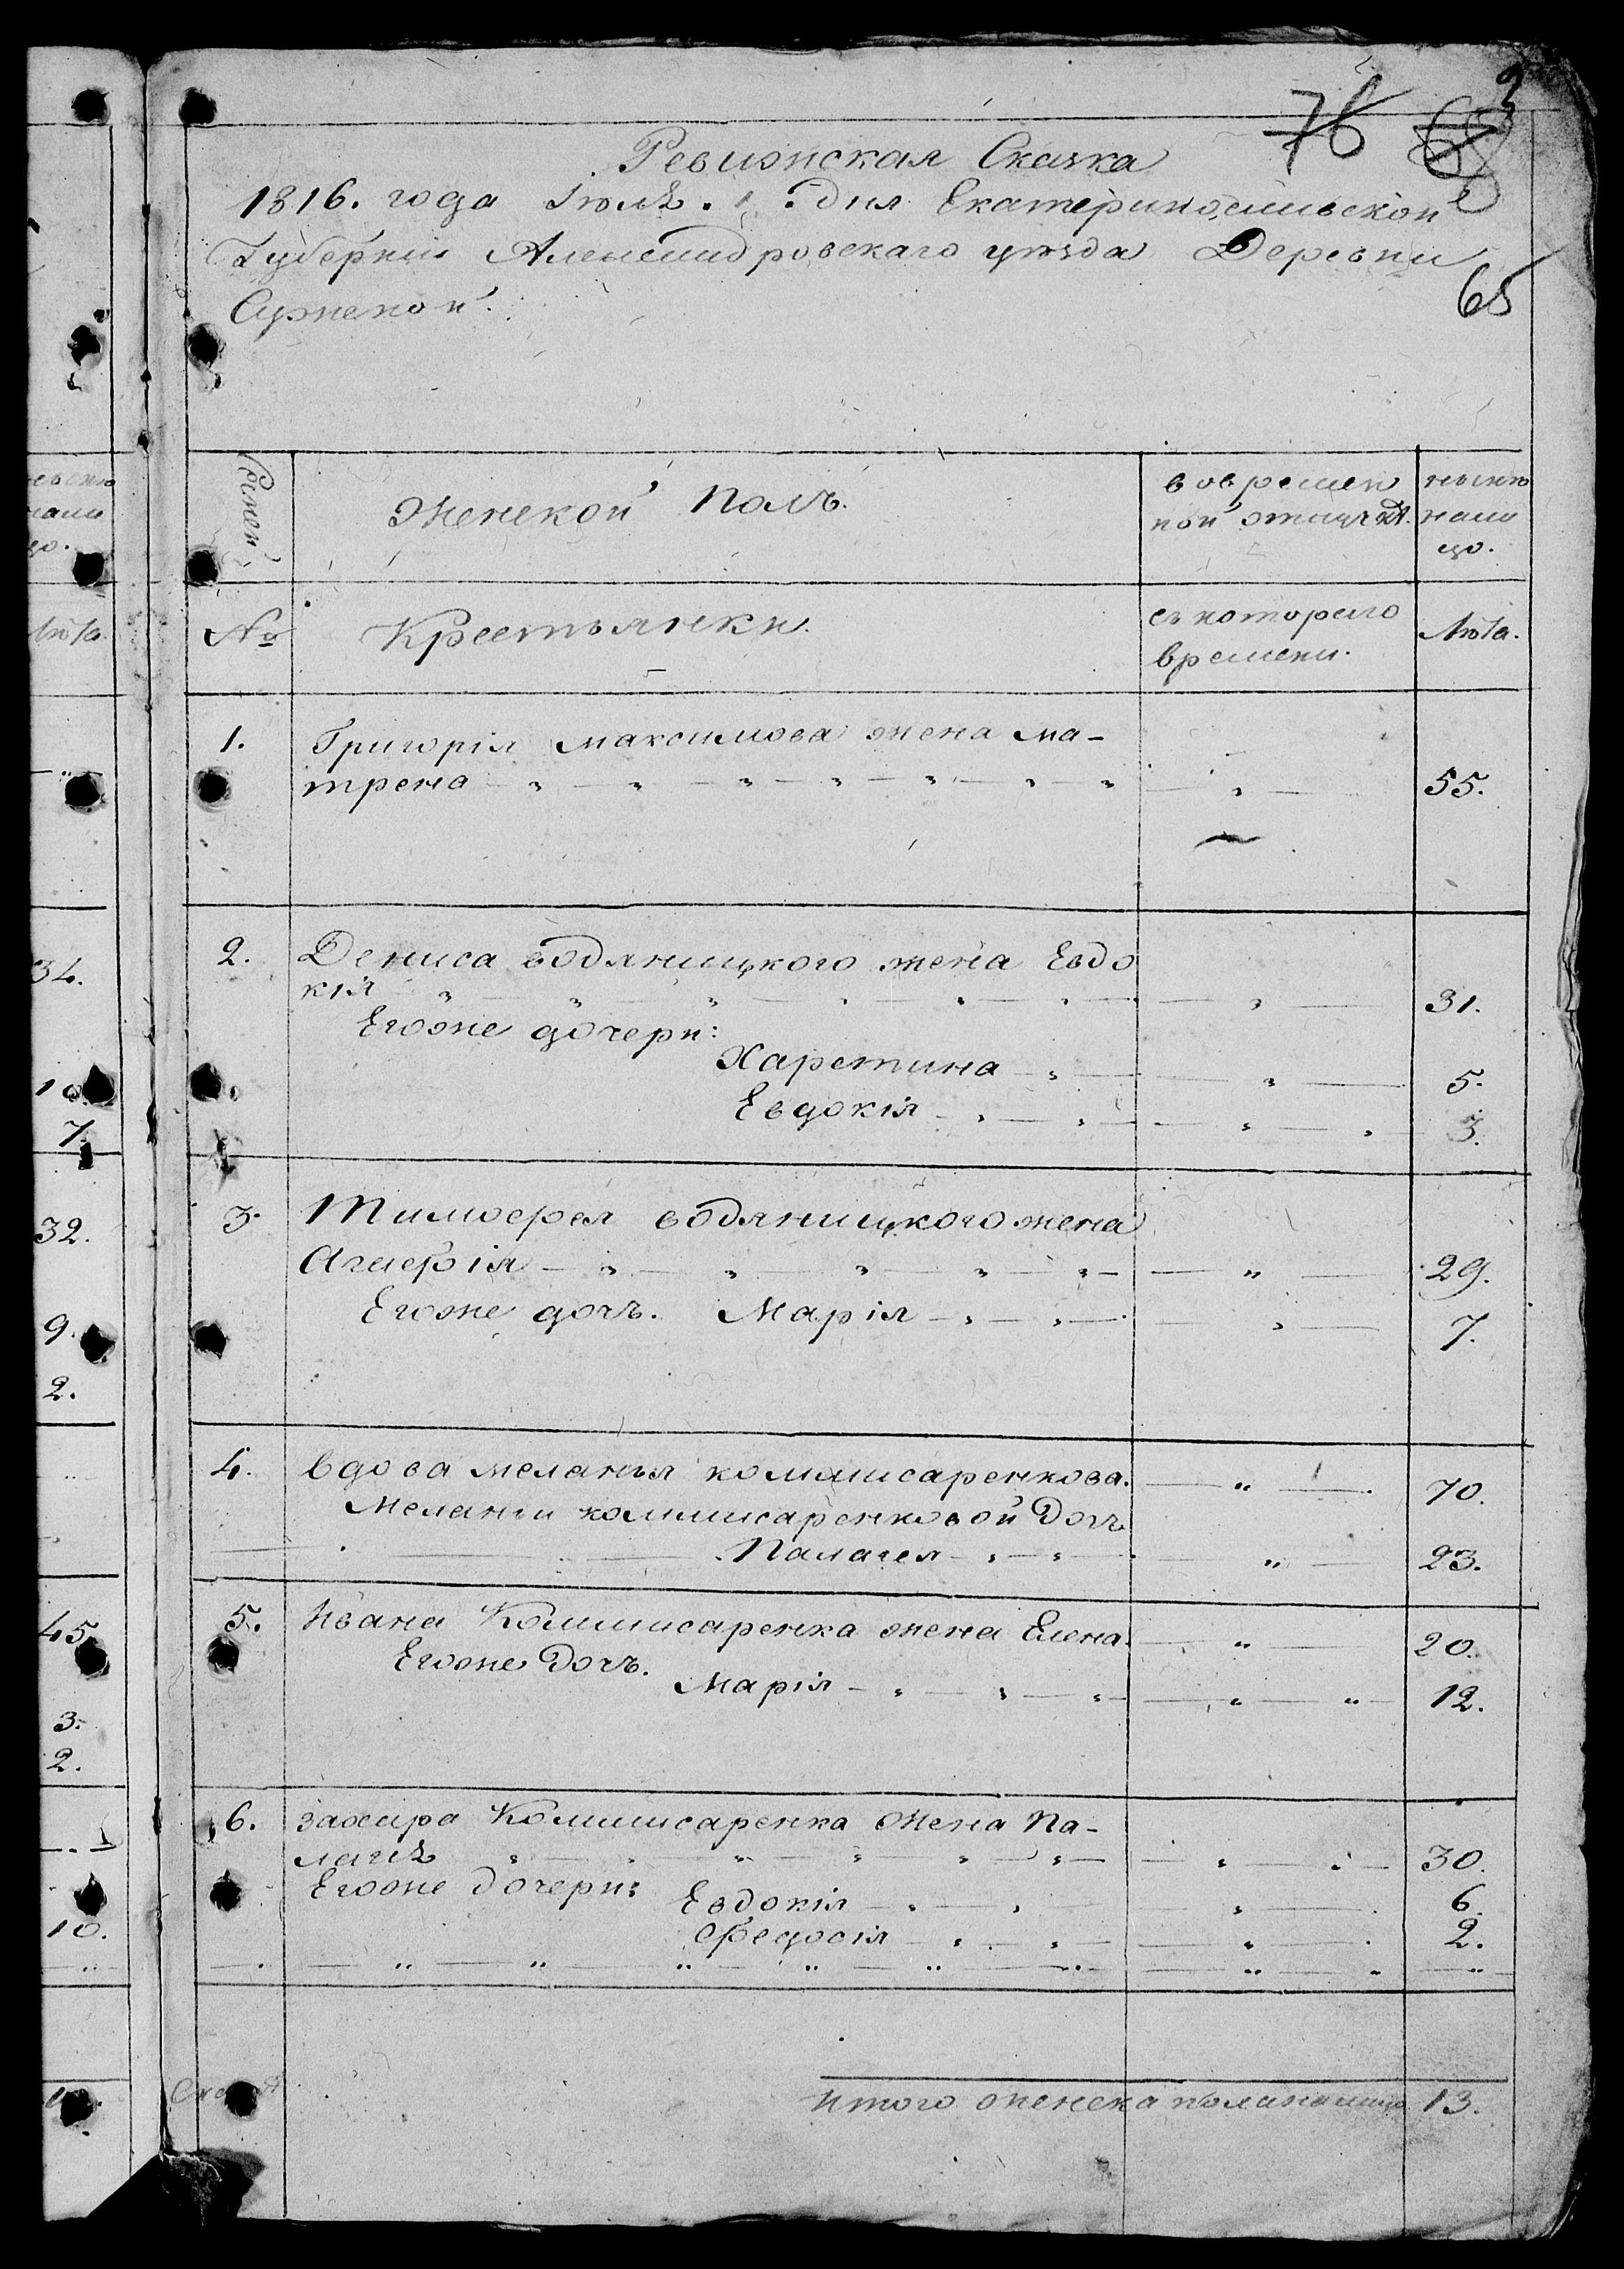 2
76 68
Ревижская Сказка
1816. года Іюля. 1 дня Екатеринославской
Губерніи Александровскаго уѣзда Деревни
65
Семей
Женской Полъ.
во времен
ной отлучкѣ.
нынѣ
нали
цо.
№
Крестьянки.
съ котораго
времени.
Лѣта.
1. Григорія Максимова жена Ма-
трена 55.
2. Дениса водяницкого жена Евдо
кія 31.
Егоже дочери:
Харетина 5.
Евдокія 3.
3. Тимофея водяницкого жена
Агафія 29.
Егоже дочь. Марія 7.
4. вдова меланья коммисаренкова. 70.
Меланіи коммисаренковой дочь
Палагея 23.
5. Ивана Коммисаренка жена Елена. 20.
Егоже дочь.
Марія 12.
6. Захара Коммисаренка Жена Па-
лагѣя 30.
Егоже дочери: Евдокія 6.
Федосія 2.
Итого женска пола налицо 13.
34.
10.
7.
32.
9.
2.
45.
3.
2.
10.